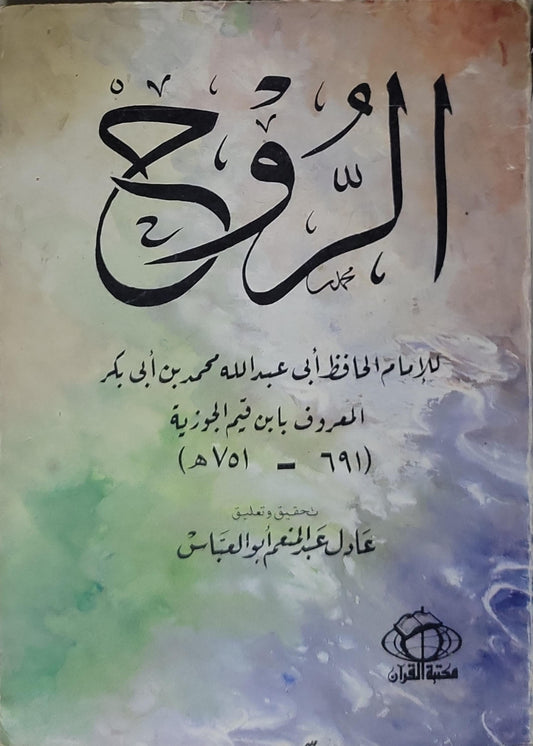 الرُّوْح
محمد
للإمام الحافظ أبي عبدالله محمد بن أبي بكر
المعروف بابن قيم الجوزية
(٦٩١ - ٧٥١ هـ)
تحقيق وتعليق
عَادل عَبدالمنعم أبوالعبَّاسْ
مكتبة القرآن